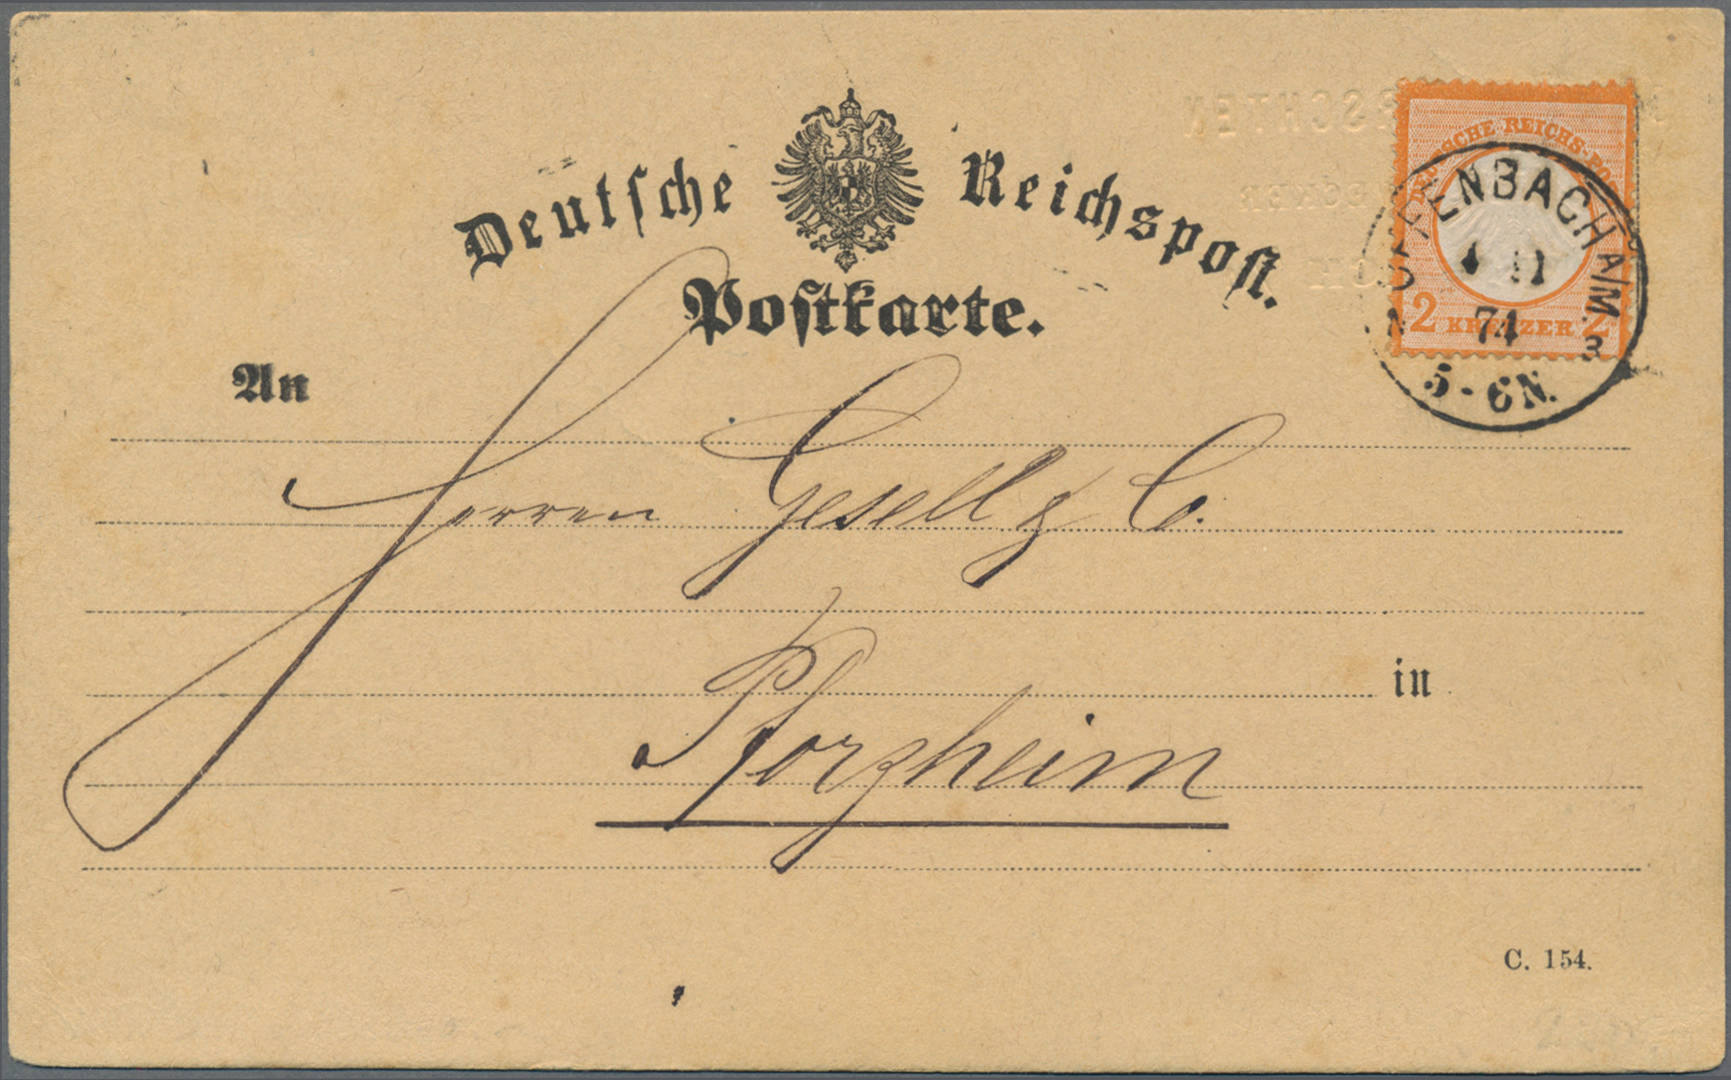 Deutsche Reichspost.
Postkarte.
An
Herren Gesell & C.
in
Pforzheim
C. 154.
DEUTSCHE REICHS-POST
2 KREUZER 2
OFFENBACH A/M.
11
74
N 3
5-6N.